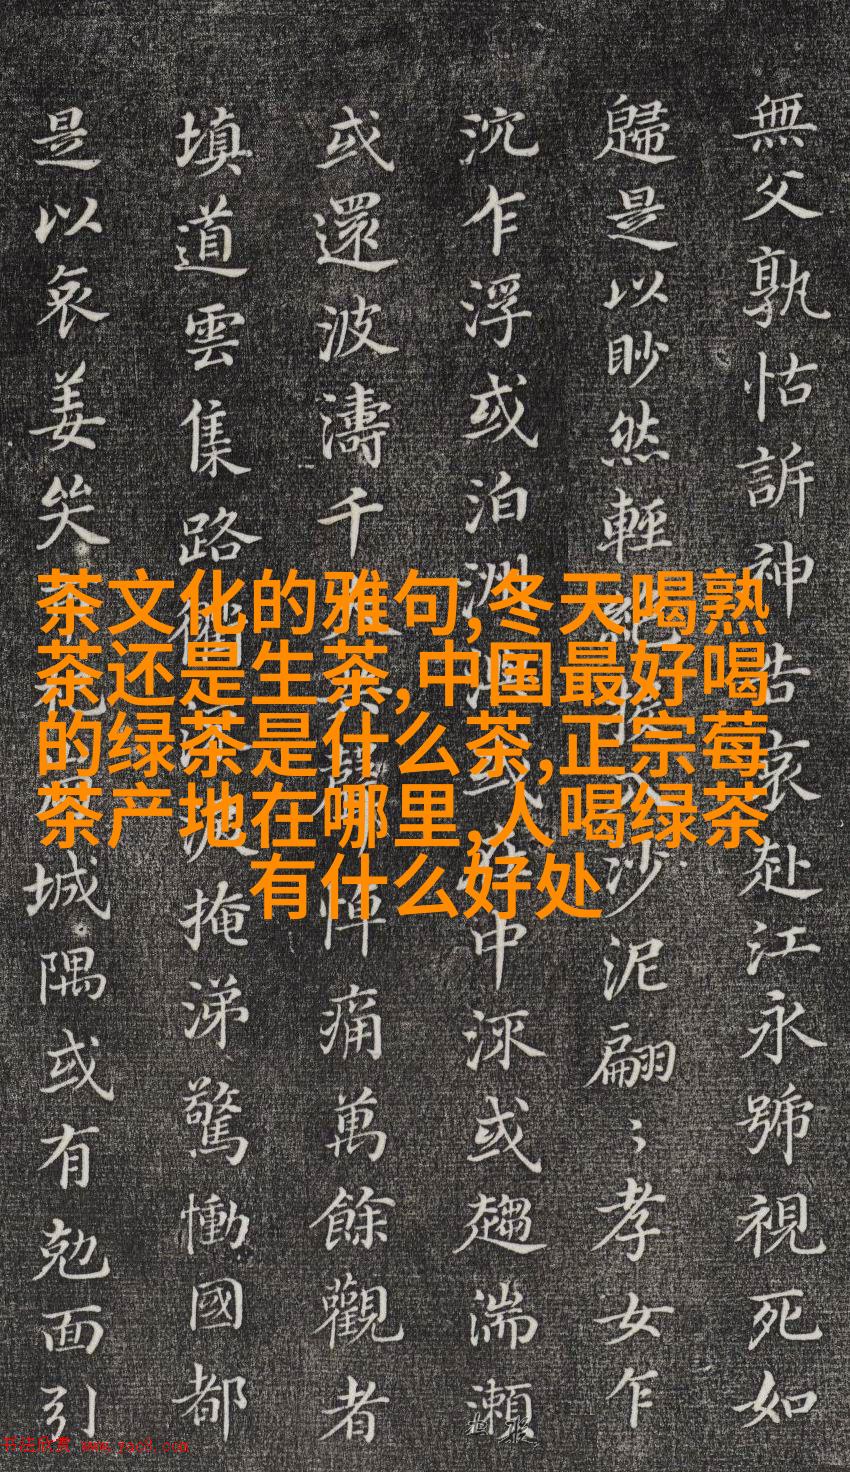 無父孰怙訴神告哀赴江永號視死如
歸是以眇然輕絕投入沙泥翩〻孝女乍
沉乍浮或泊洲渚或在中流或趨湍瀨
或還波濤千夫失聲悼痛萬餘觀者
填道雲集路衢掩涕驚慟國都
是以哀姜哭市杞崩城隅或有勊面引
茶文化的雅句,冬天喝熟
茶还是生茶,中国最好喝
的绿茶是什么茶,正宗莓
茶产地在哪里,人喝绿茶
有什么好处
书法欣赏 www.yac8.com